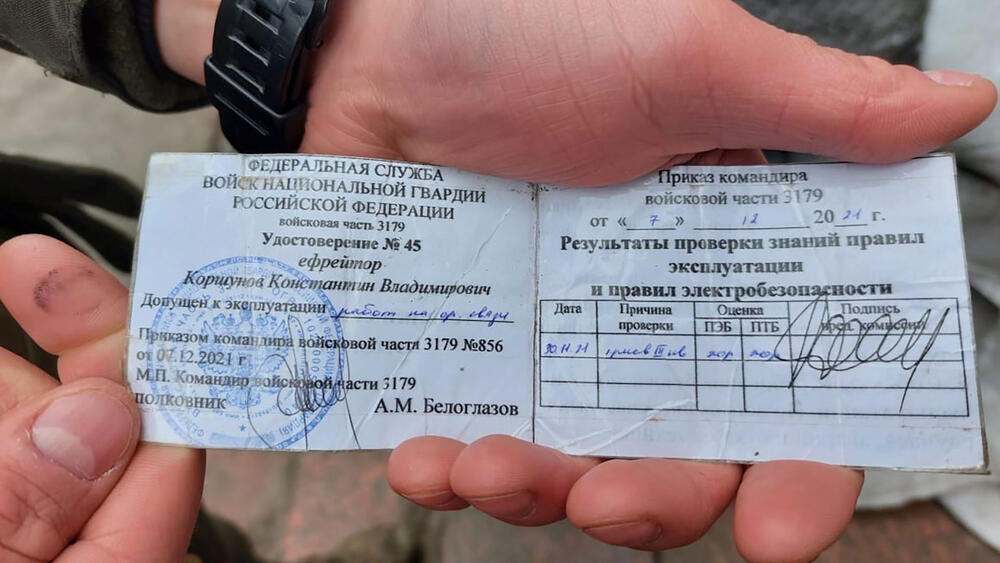 ФЕДЕРАЛЬНАЯ СЛУЖБА
ВОЙСК НАЦИОНАЛЬНОЙ ГВАРДИИ
РОССИЙСКОЙ ФЕДЕРАЦИИ
войсковая часть 3179
Удостоверение № 45
ефрейтор
Коршунов Константин Владимирович
Допущен к эксплуатации работ на ср. связи
Приказом командира войсковой части 3179 №856
от 07.12.2021 г
М.П. Командир войсковой части 3179
полковник
А.М. Белоглазов
Приказ командира
войсковой части 3179
от « 7 » 12 20 21 г.
Результаты проверки знаний правил
эксплуатации
и правил электробезопасности
Дата Причина проверки Оценка Подпись
ПЭБ ПТБ пред. комиссии
30.11.21 III хор хор